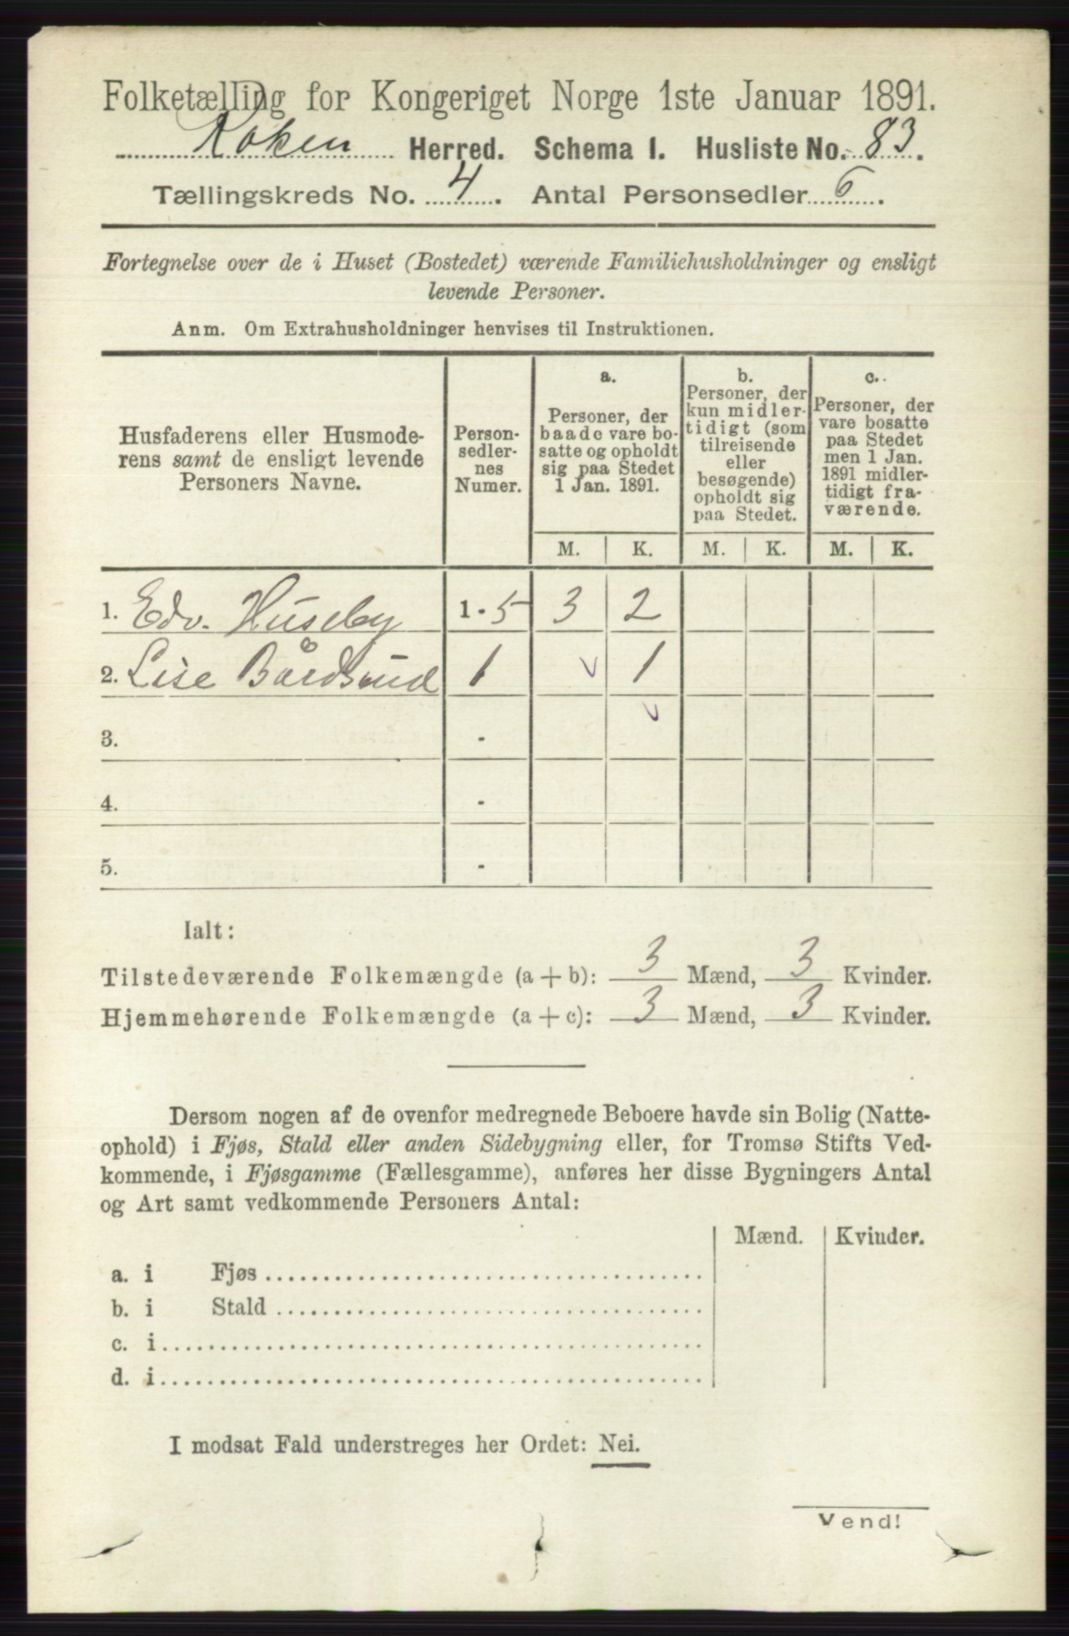 Folketælling for Kongeriget Norge 1ste Januar 1891.
Røken Herred. Schema I. Husliste No. 83.
Tællingskreds No. 4. Antal Personsedler 6.
Fortegnelse over de i Huset (Bostedet) værende Familiehusholdninger og ensligt
levende Personer.
Anm. Om Extrahusholdninger henvises til Instruktionen.
Husfaderens eller Husmode-
rens samt de ensligt levende
Personers Navne.
Person-
sedler-
nes
Numer.
a.
Personer, der
baade vare bo-
satte og opholdt
sig paa Stedet
1 Jan. 1891.
b.
Personer, der
kun midler-
tidigt (som
tilreisende
eller
besøgende)
opholdt sig
paa Stedet.
c.
Personer, der
vare bosatte
paa Stedet
men 1 Jan.
1891 midler-
tidigt fra-
værende.
M. K. M. K. M. K.
1. Edv. Huseby 1 - 5 3 2
2. Lise Bårdsrud 1 v 1
3. - v
4. -
5. -
Ialt:
Tilstedeværende Folkemængde (a + b): 3 Mænd, 3 Kvinder.
Hjemmehørende Folkemængde (a + c): 3 Mænd, 3 Kvinder.
Dersom nogen af de ovenfor medregnede Beboere havde sin Bolig (Natte-
ophold) i Fjøs, Stald eller anden Sidebygning eller, for Tromsø Stifts Ved-
kommende, i Fjøsgamme (Fællesgamme), anføres her disse Bygningers Antal
og Art samt vedkommende Personers Antal:
Mænd. Kvinder.
a. i Fjøs
b. i Stald
c. i
d. i
I modsat Fald understreges her Ordet: Nei.
Vend!